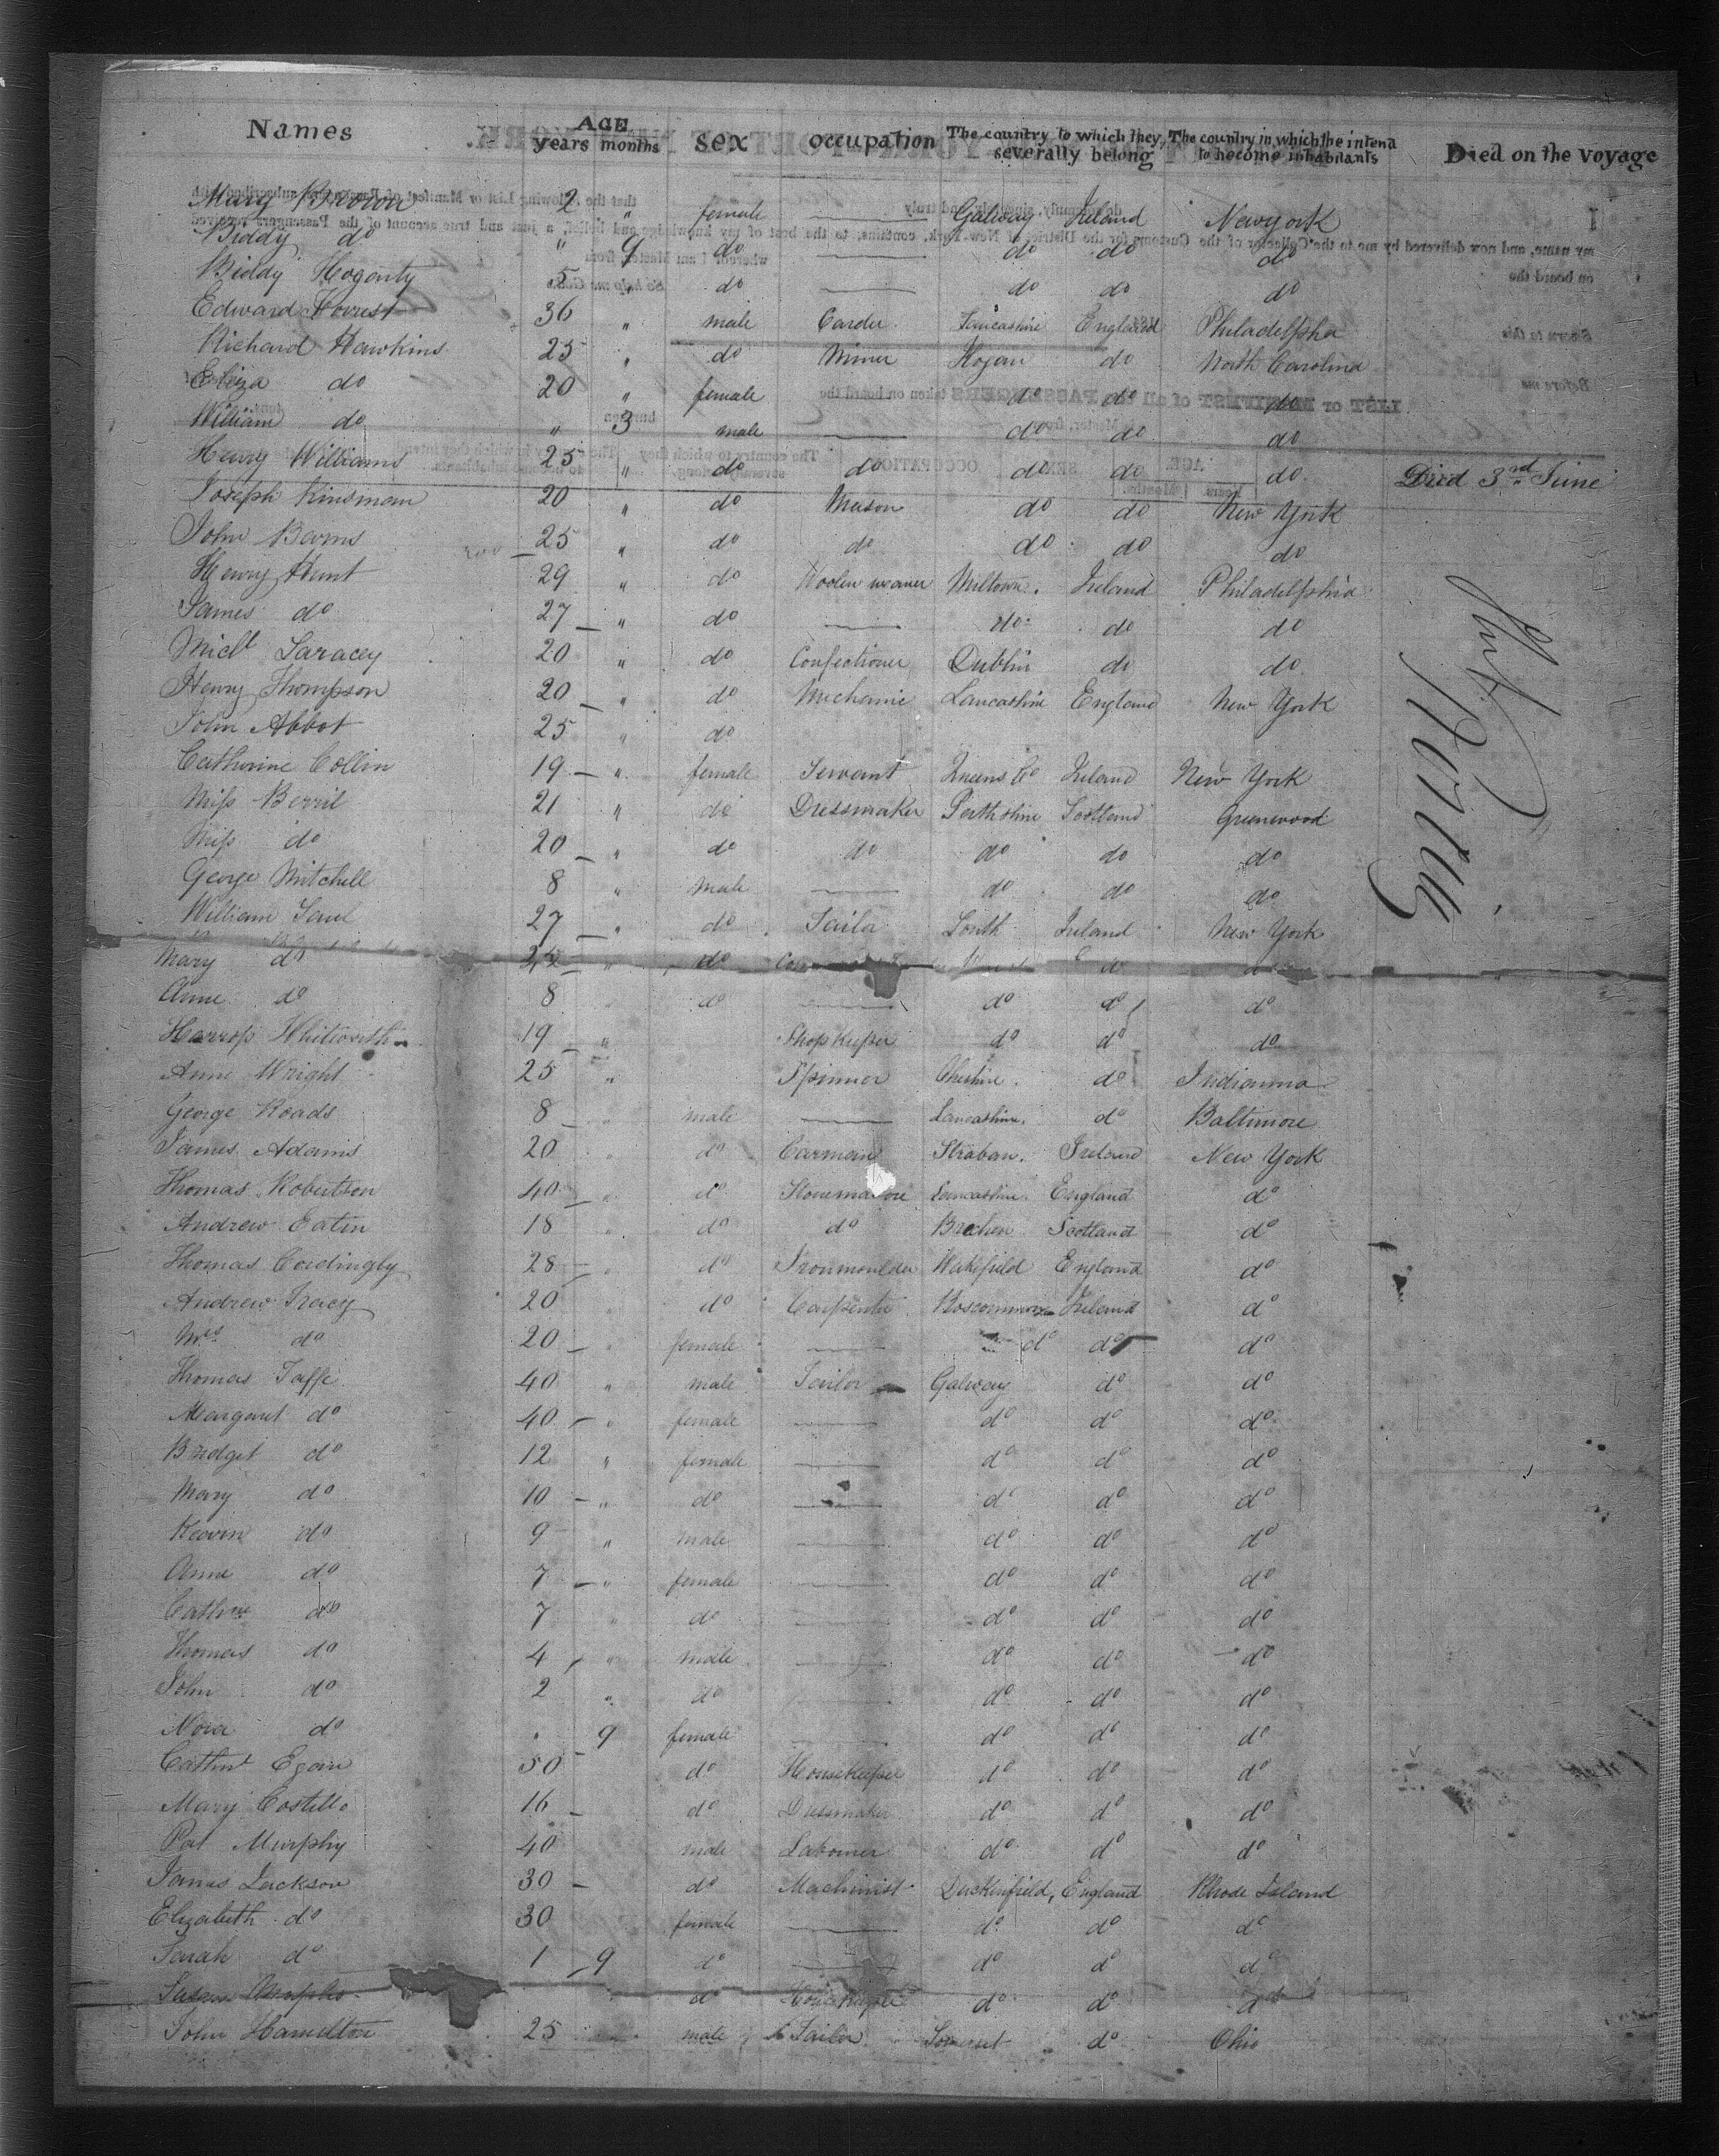 Names AGE years months sex occupation The country to which they severally belong The country in which the intend to become inhabitants Died on the voyage
Mary Brown 2 " female — Galway Ireland Newyork
Biddy do " 9 do — do do do
Biddy Hogarty 5 " do — do do do
Edward Forrest 36 " male Carder Lancashire England Philadelpha
Richard Hawkins 25 " do Miner do North Carolina
Eliza do 20 " female do do do
William do " 3 male — do do do
Henry Williams 25 " do do do do do Died 3rd June
Joseph Kinsman 20 " do Mason do do New York
John Barns 25 " do do do do do
Henry Hunt 29 " do Woolen weaver Miltown Ireland Philadelphia
James do 27 " do — do do do
Michl Saracey 20 " do Confectioner Dublin do do
Henry Thompson 20 " do Mechanic Lancashire England New York
John Abbot 25 " do
Catherine Collin 19 " female Servant Queens Co Ireland New York
Miss Berril 21 " do Dressmaker Perthshire Scotland Greenwood
Miss do 20 " do do do do do
George Mitchell 8 " male — do do do
William Saul 27 " do Tailor South Ireland New York
Mary do " do
Anne do 8 " do — do do do
Harrop Whitworth 19 " Shopkeeper do do do
Anne Wright 25 " Spinner Cheshire do Indianna
George Roads 8 " male — Lancashire do Baltimore
James Adams 20 " do Carman Straban Ireland New York
Thomas Robertson 40 " do Lancashire England do
Andrew Eatin 18 " do do Brechen Scotland do
Thomas Cordingly 28 " do Ironmoulder Wakefield England do
Andrew Tracy 20 " do Carpenter Roscommon Ireland do
Mrs do 20 " female — do do do
Thomas Taffe 40 " male Tailor Galway do do
Margaret do 40 " female — do do do
Bridget do 12 " female — do do do
Mary do 10 " do — do do do
Keavin do 9 " male — do do do
Anne do 7 " female — do do do
do 7 " do — do do do
Thomas do 4 " male — do do do
John do 2 " do — do do do
Nora do " 9 female do do do
Egan 50 do Housekeeper do do do
Mary Costello 16 do Dressmaker do do do
Pat Murphy 40 male Labourer do do do
James Jackson 30 do Machinist Duckinfield, England Rhode Island
Elizabeth do 30 female — do do do
Sarah do 1 9 do — do do do
Susan do Housekeeper do do do
John Hamilton 25 male Tailor Somerset do Ohio